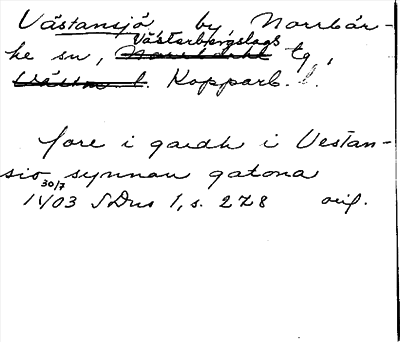 Västansjö by Norrbär-
Västerbergslags
ke sn, tg,
Kopparb. l.
fore i gardh i Vestan-
sio synnan gatona
30/7
1403 SDns 1, s. 278 orig.